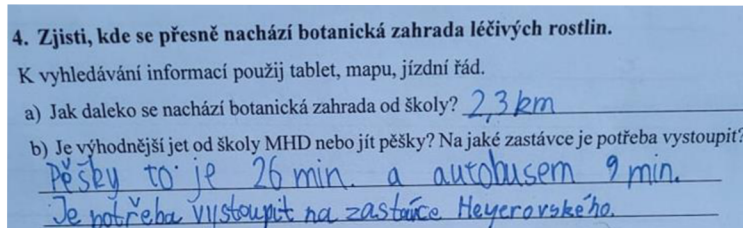 4. Zjisti, kde se přesně nachází botanická zahrada léčivých rostlin.
K vyhledávání informací použij tablet, mapu, jízdní řád.
a) Jak daleko se nachází botanická zahrada od školy? 2,3 km
b) Je výhodnější jet od školy MHD nebo jít pěšky? Na jaké zastávce je potřeba vystoupit?
Pěšky to je 26 min. a autobusem 9 min.
Je potřeba vystoupit na zastávce Heyerovského.